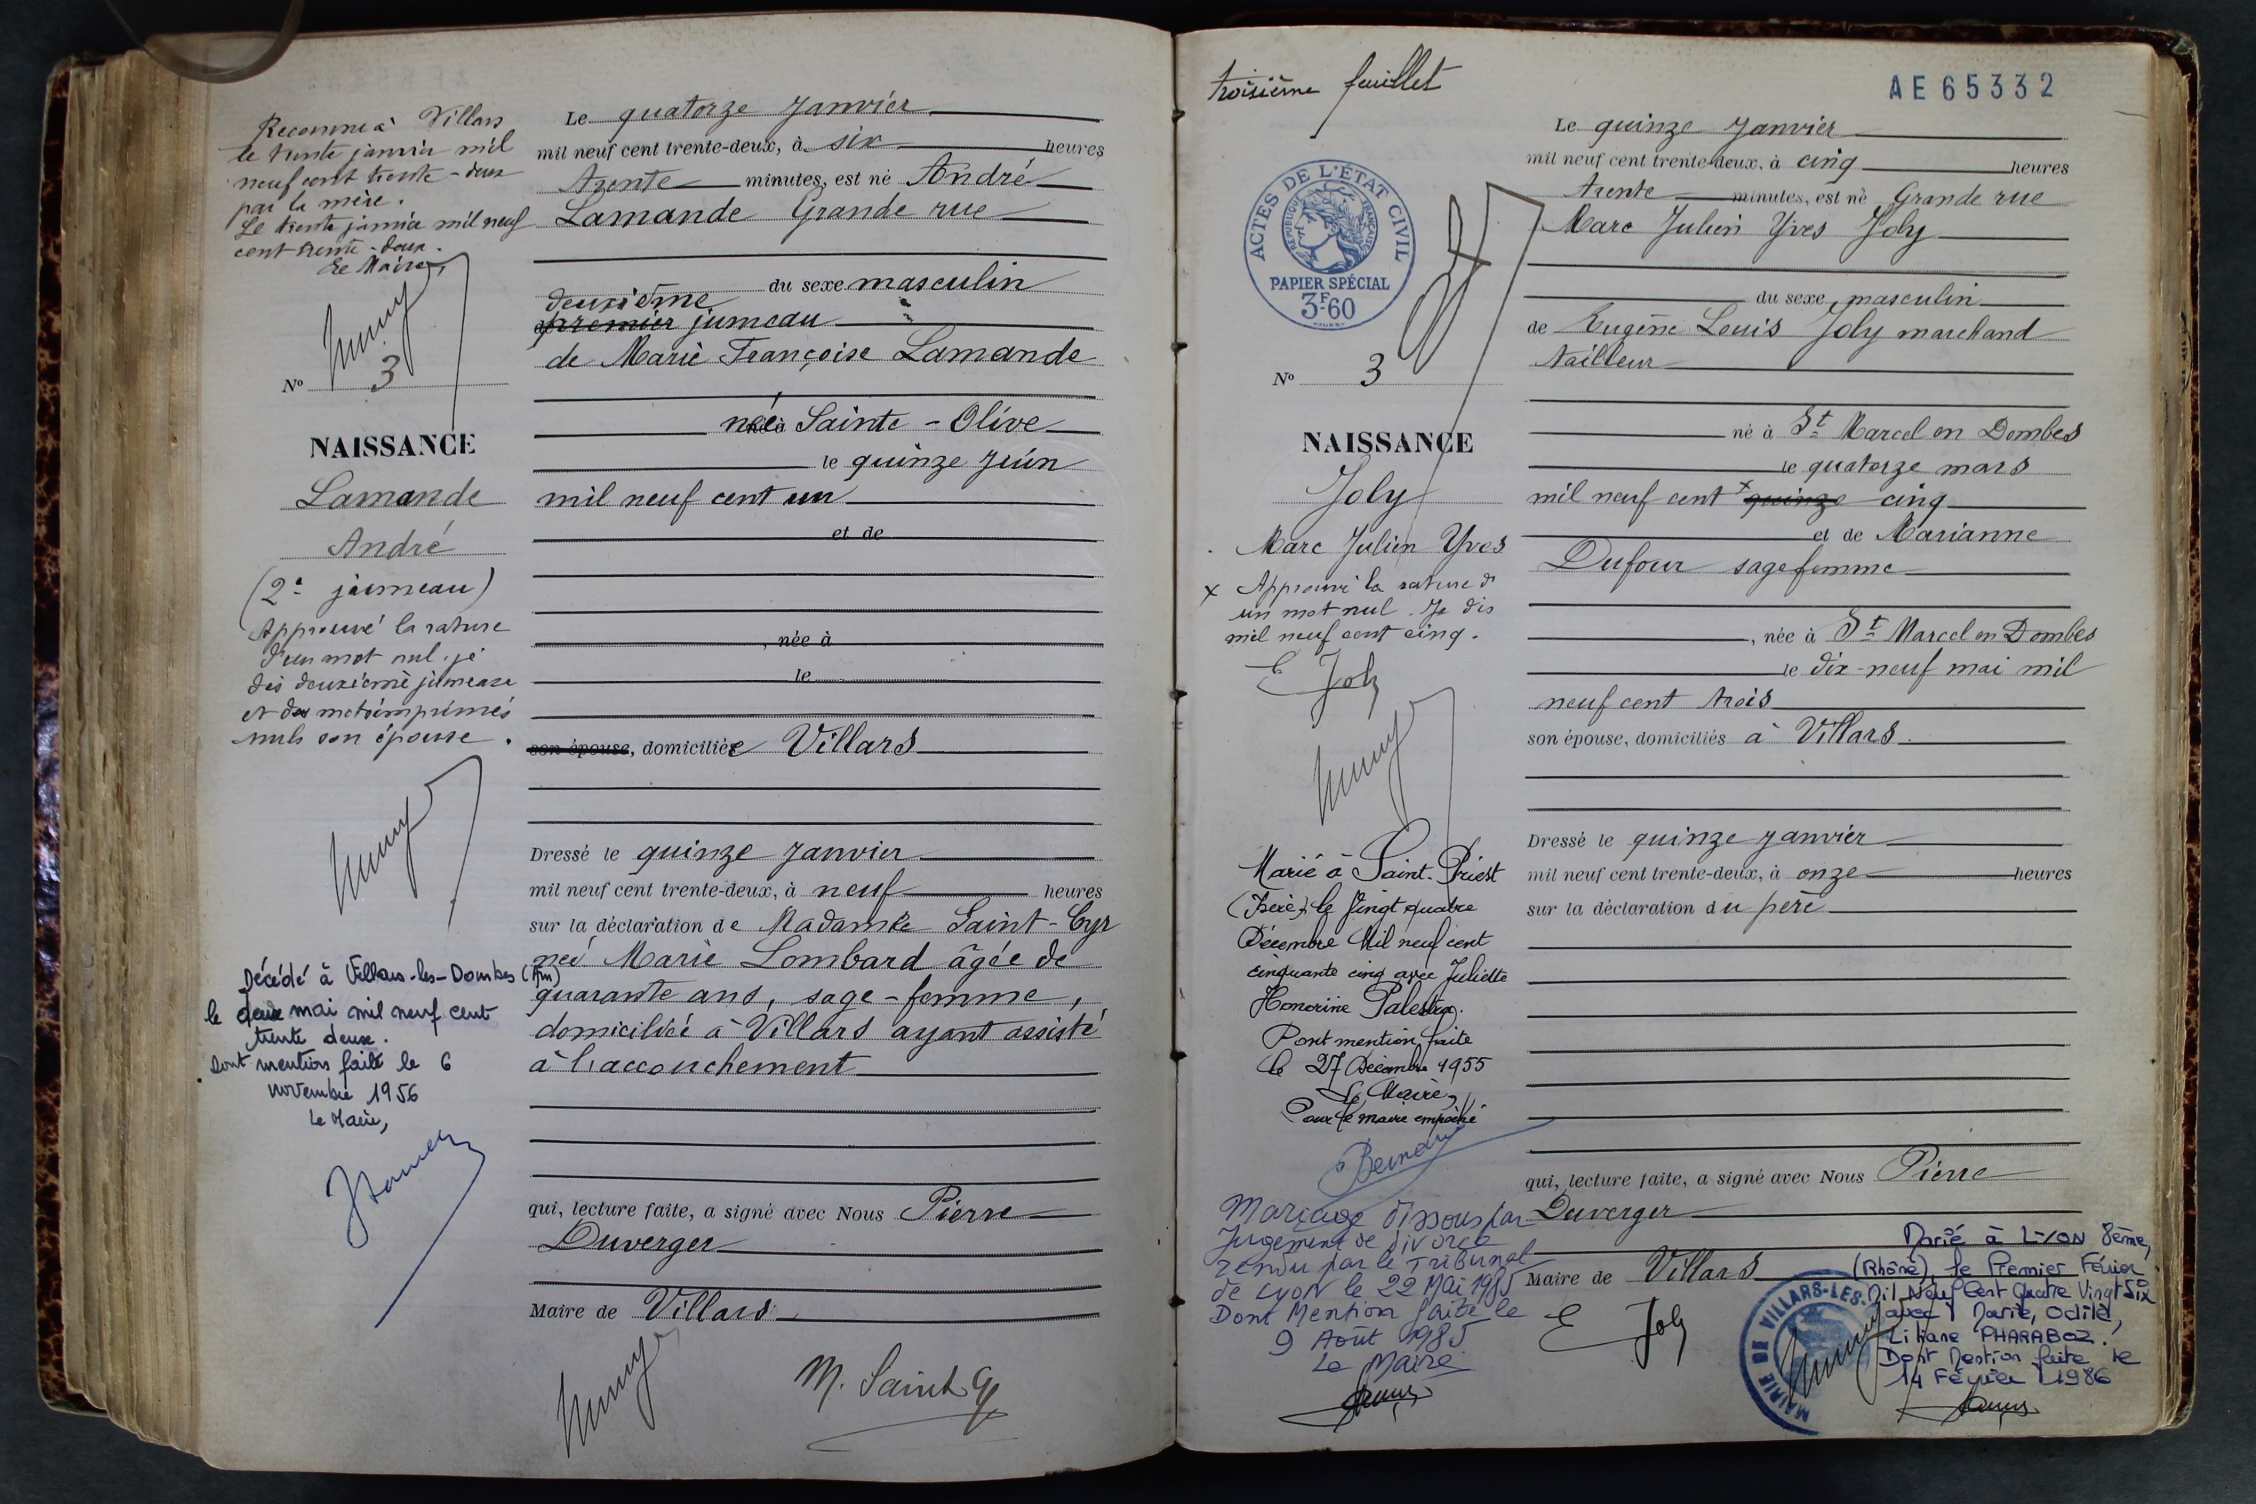 Reconnu à Villars
le trente janvier mil
neuf cent trente-deux
par la mère.
Le trente janvier mil neuf
cent trente-deux.
Le Maire,
N° 3
NAISSANCE
Lamande
André
(2e jumeau)
Approuvé la rature
d'un mot nul. je
dis deuxième jumeau
et des mots imprimés
nuls son épouse.
Décédé à Villars-les-Dombes (Ain)
le deux mai mil neuf cent
trente deux.
Dont mention faite le 6
novembre 1956
Le Maire,
Le quatorze Janvier
mil neuf cent trente-deux, à six heures
trente minutes, est né André
Lamande Grande rue
du sexe masculin
deuxième
premier jumeau
de Marie Françoise Lamande
née à Sainte-Olive
le quinze Juin
mil neuf cent un
et de
, née à
le
son épouse, domiciliée Villars
Dressé le quinze Janvier
mil neuf cent trente-deux, à neuf heures
sur la déclaration de Madame Saint-Cyr
née Marie Lombard âgée de
quarante ans, sage-femme,
domiciliée à Villars ayant assisté
à l'accouchement
qui, lecture faite, a signé avec Nous Pierre
Duverger
Maire de Villars
M. Saint Cyr
troisième feuillet
AE65332
ACTES DE L'ÉTAT CIVIL
RÉPUBLIQUE FRANÇAISE
PAPIER SPÉCIAL
3F60
N° 3
NAISSANCE
Joly
Marc Julien Yves
x Approuvé la rature d
un mot nul. Je dis
mil neuf cent cinq.
E Joly
Marié à Saint-Priest
(Isère) le Vingt quatre
Décembre Mil neuf cent
cinquante cinq avec Juliette
Honorine Palestra.
Dont mention faite
le 27 Décembre 1955
Le Maire,
Pour le maire empêché
Mariage dissous par
Jugement de divorce
rendu par le Tribunal
de Lyon le 22 Mai 1985
Dont Mention faite le
9 Août 1985
Le Maire
Le quinze Janvier
mil neuf cent trente-deux, à cinq heures
trente minutes, est né Grande rue
Marc Julien Yves Joly
du sexe masculin
de Eugène Louis Joly marchand
tailleur
né à St Marcel en Dombes
le quatorze mars
mil neuf cent x quinze cinq
et de Marianne
Dufour sage femme
, née à St Marcel en Dombes
le dix-neuf mai mil
neuf cent trois
son épouse, domiciliés à Villars.
Dressé le quinze Janvier
mil neuf cent trente-deux, à onze heures
sur la déclaration du père
qui, lecture faite, a signé avec Nous Pierre
Duverger
Maire de Villars
E Joly
MAIRIE DE VILLARS-LES-
Marié à LYON 8ème,
(Rhône), le Premier Février
Mil Neuf Cent Quatre Vingt Six
avec Marie, Odile,
Liliane PHARABOZ.
Dont Mention faite le
14 Février 1986